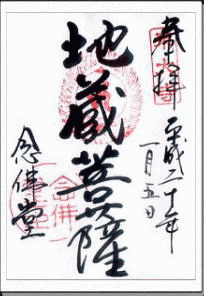 奉拝
平成二十年
一月五日
地蔵菩薩
念佛堂